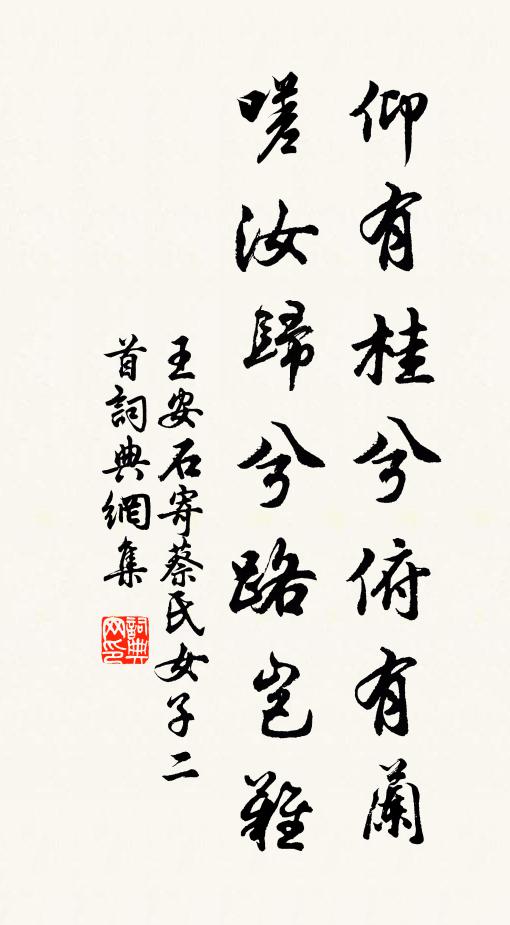 仰有桂兮俯有蘭
嗟汝歸兮路豈難
王安石寄蔡氏女子二
首詞典網集
詞典
网印